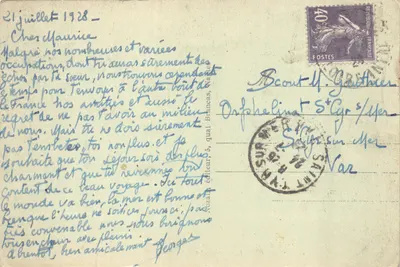 21 juillet 1928 -
Cher Maurice
Malgré nos nombreuses et variées
occupations, dont tu auras sûrement des
échos par ta sœur, nous trouvons cependant
le temps pour t'envoyer à l'autre bout de
la France nos amitiés et aussi le
regret de ne pas t'avoir au milieu
de nous. Mais tu ne dois sûrement
pas t'embêter, toi non plus, et je
souhaite que ton séjour soit des plus
charmant et que tu reviennes tout
content de ce beau voyage. Ici tout
le monde va bien, la mer est bonne et
quoique l'heure ne soit
très convenable nous nous baignons
tous en chœur avec plaisir.
à bientôt, bien amicalement
Georges
40
POSTES
Scout M. Gauthier
Orphelinat St Cyr s/Mer
St Cyr sur Mer
Var
SAINT-CYR-SUR-MER
24
28
VAR